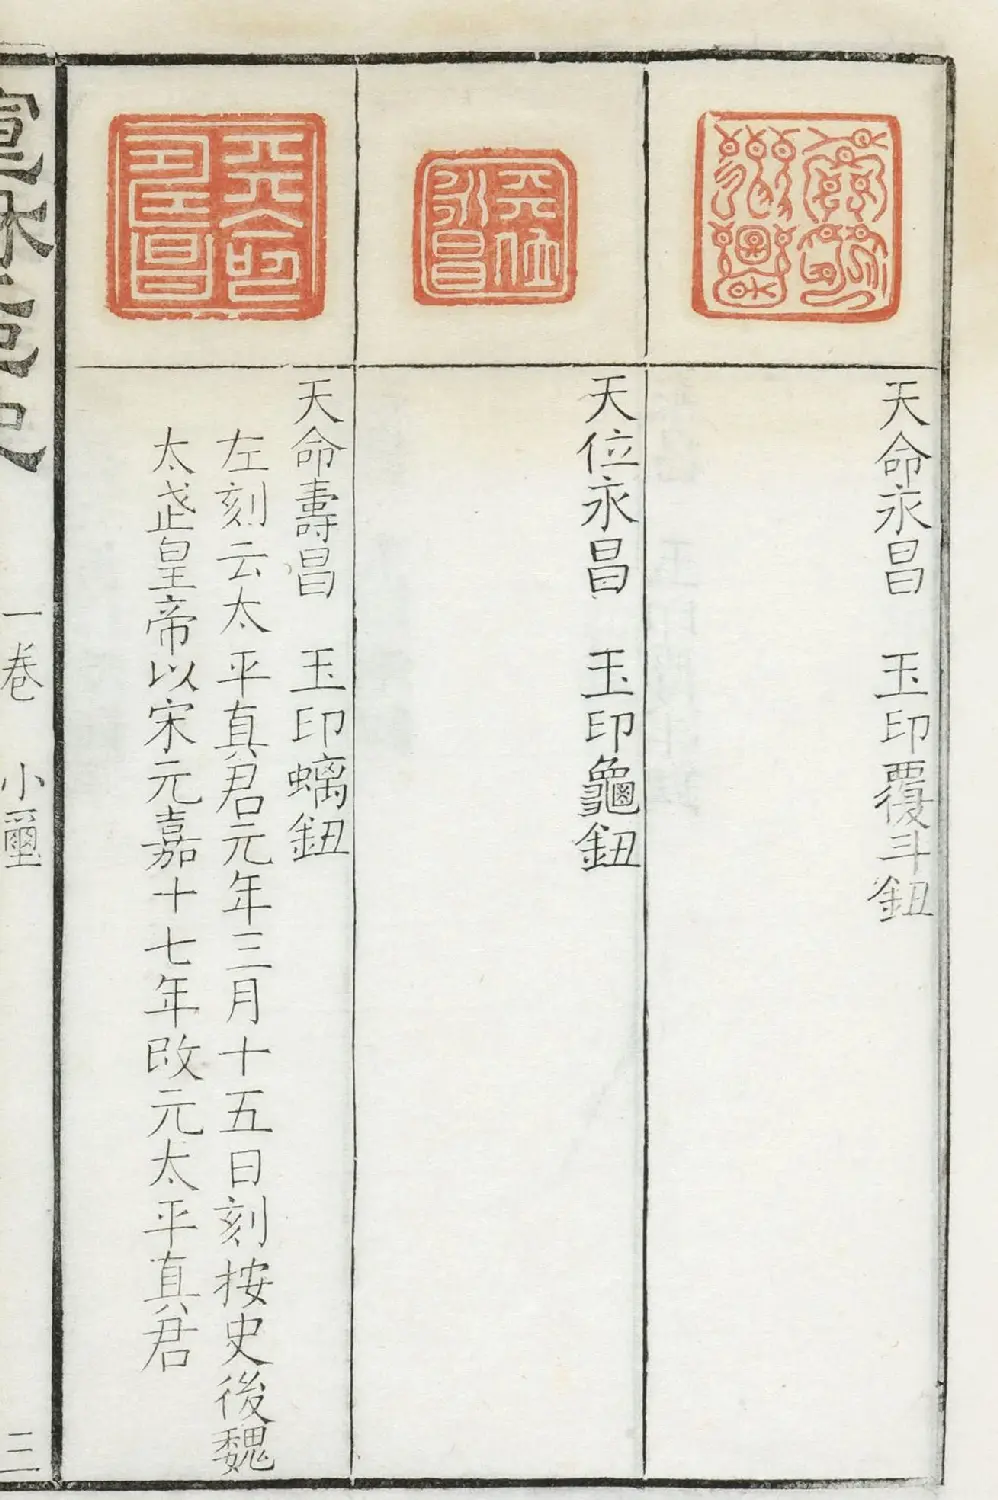 天命永昌　玉印覆斗鈕
天位永昌
天位永昌　玉印龜鈕
天命壽昌　玉印螭鈕
左刻云太平真君元年三月十五日刻按史後魏
太武皇帝以宋元嘉十七年改元太平真君
一卷　小璽
三